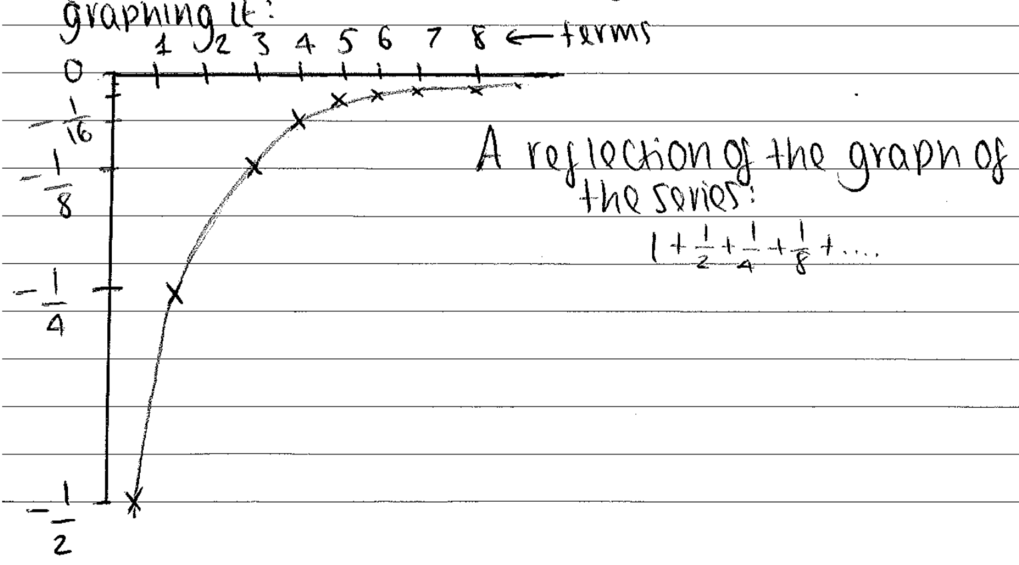 graphing it:
1 2 3 4 5 6 7 8 ← terms
0
-1/16
-1/8
-1/4
-1/2
A reflection of the graph of
the series:
1 + 1/2 + 1/4 + 1/8 + ....